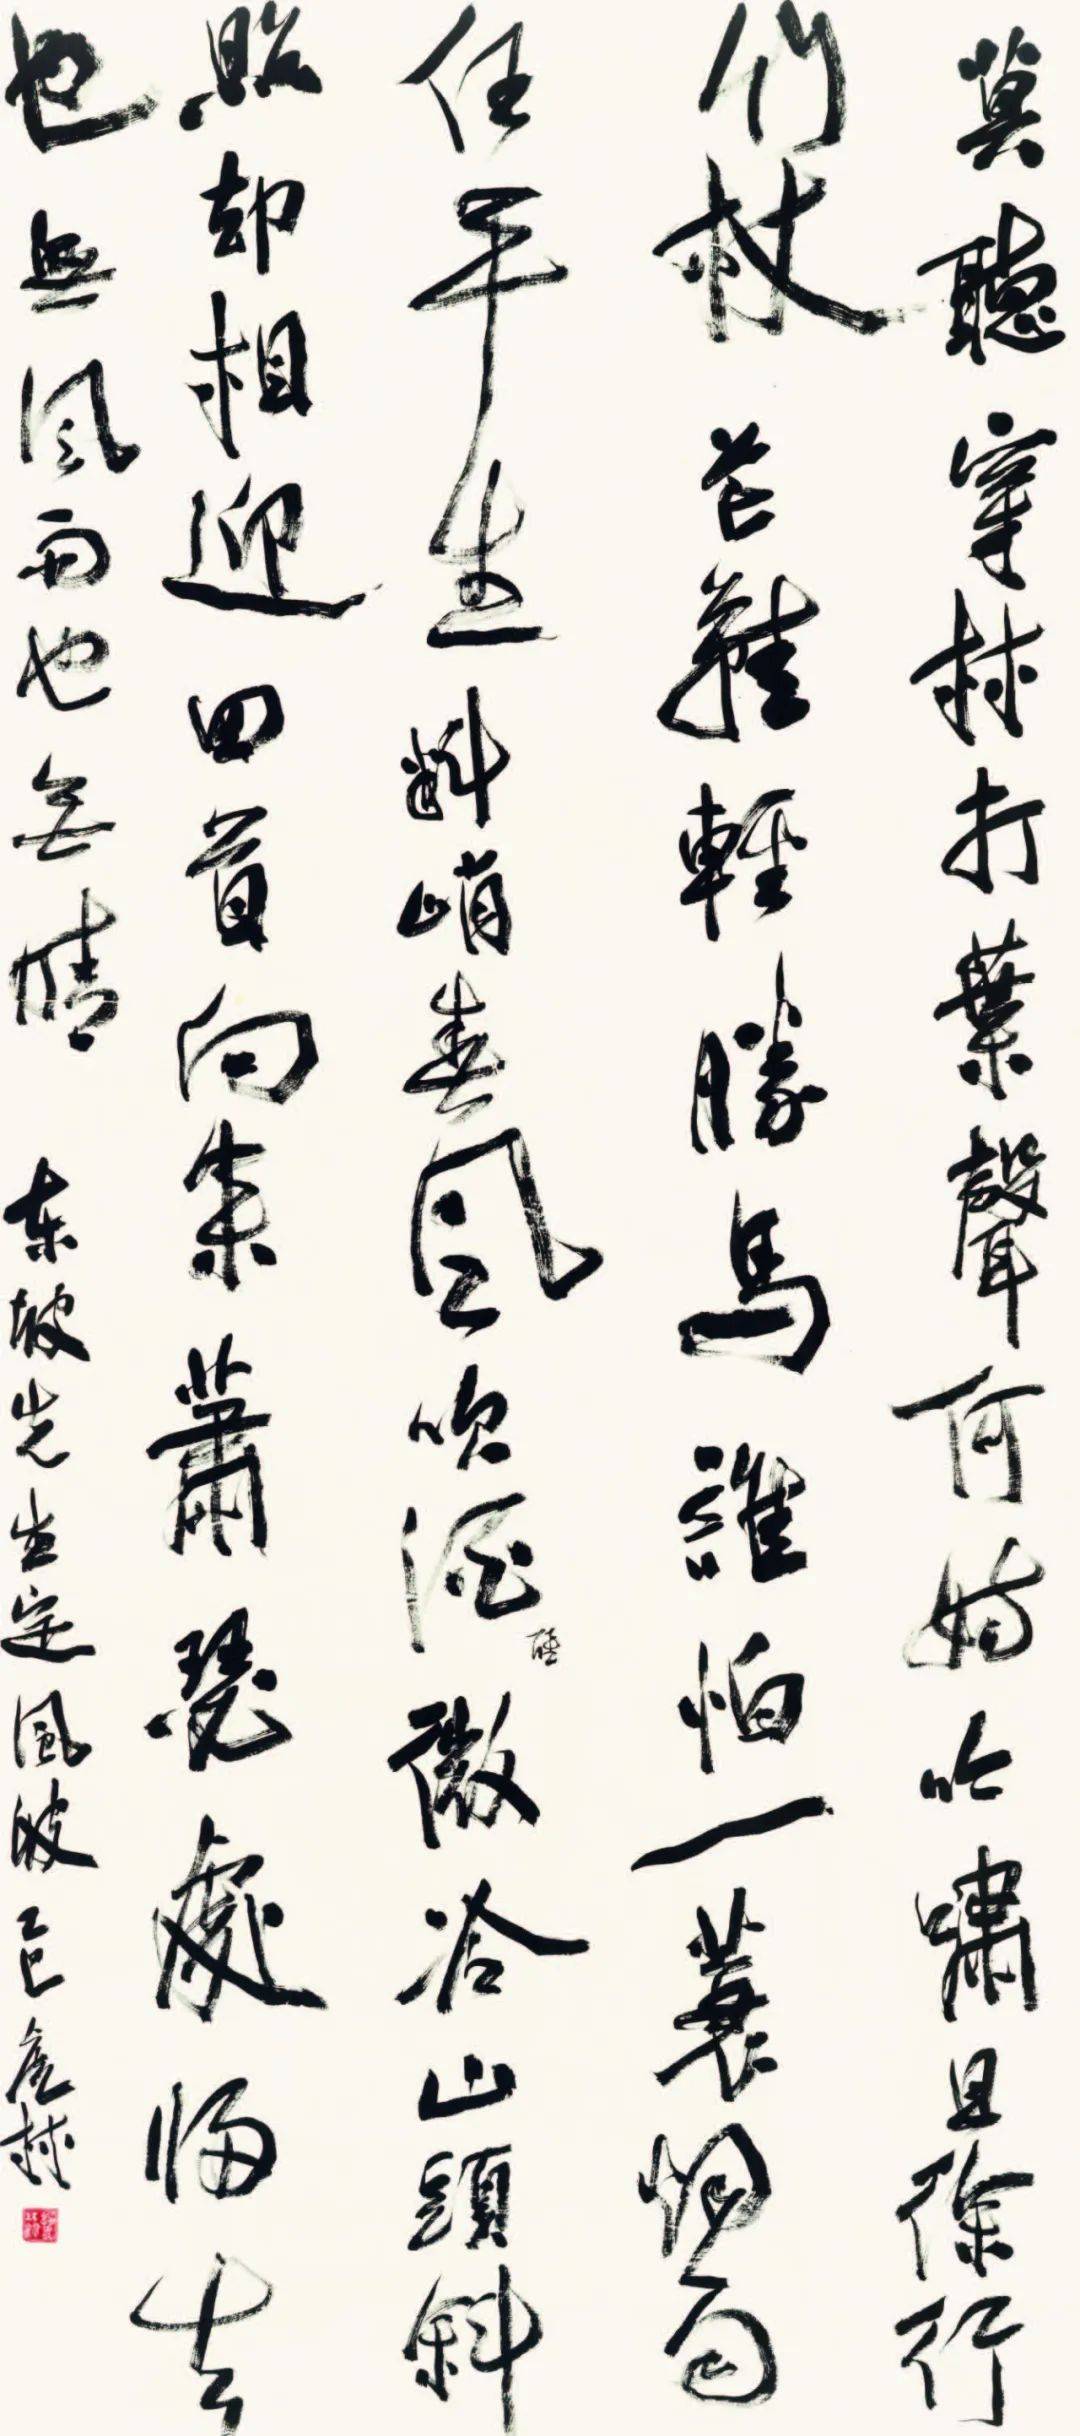 莫聽穿林打葉聲何妨吟嘯且徐行
竹杖芒鞋輕勝馬誰怕一蓑煙雨
任平生料峭春風吹酒醒微冷山頭斜
照却相迎回首向來蕭瑟處歸去
也無風雨也無晴 东坡先生定風波乙巳